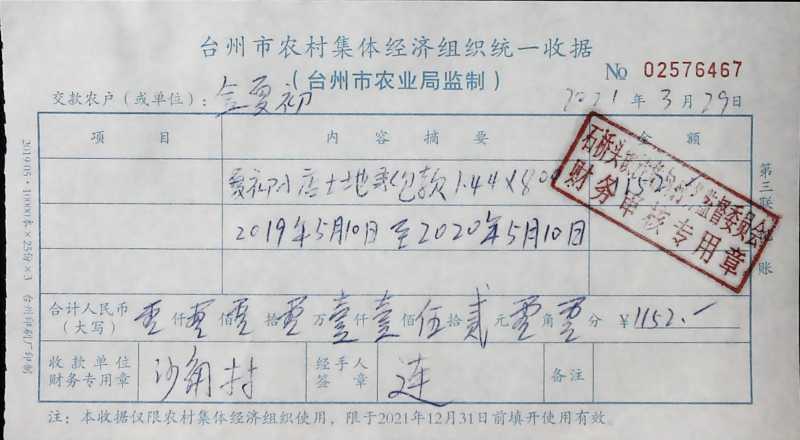 台州市农村集体经济组织统一收据
(台州市农业局监制)
No 02576467
交款农户(或单位): 金夏初
2021年3月29日
项目 内容摘要 金额
土地承包款1.44×800 1152
2019年5月10日至2020年5月10日
石桥头镇 监督委员会
财务审核专用章
合计人民币(大写) 零仟零佰零拾零万壹仟壹佰伍拾贰元零角零分 ¥1152.-
收款单位财务专用章 沙角村 经手人签章 连 备注
注:本收据仅限农村集体经济组织使用,限于2021年12月31日前填开使用有效。
第三联
账
201905-10000本×25份×3